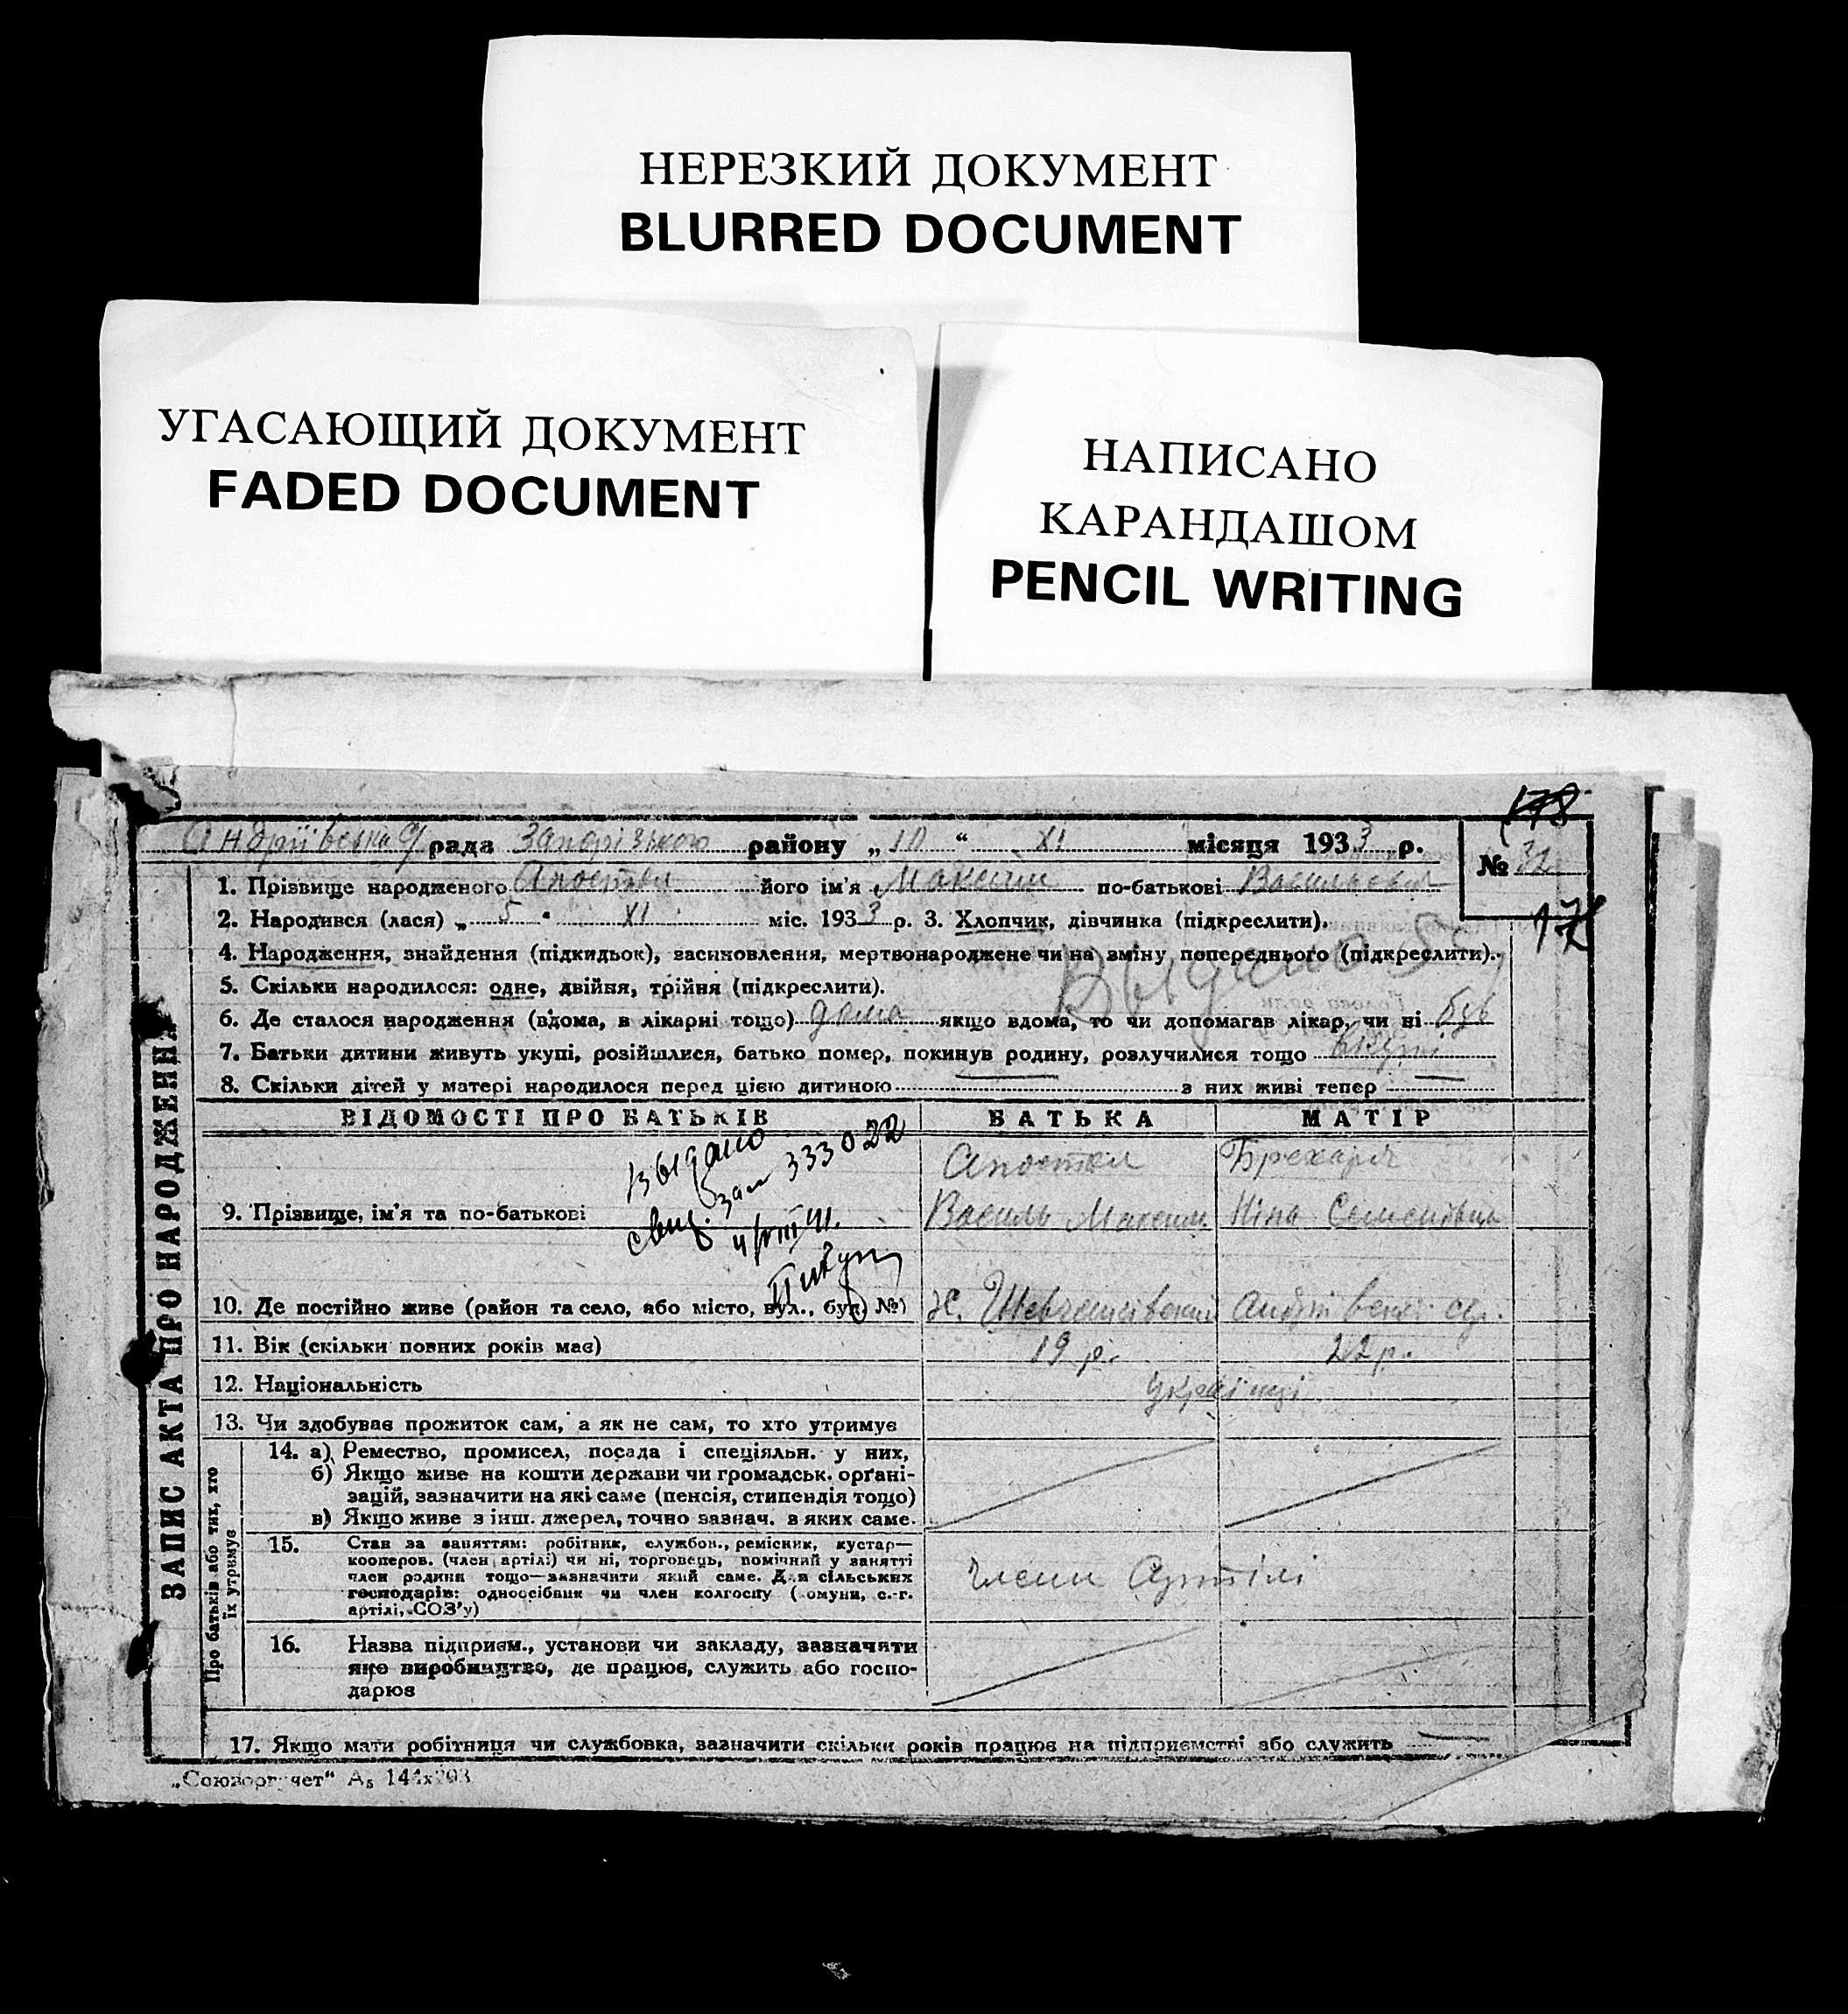 НЕРЕЗКИЙ ДОКУМЕНТ
BLURRED DOCUMENT
УГАСАЮЩИЙ ДОКУМЕНТ
FADED DOCUMENT
НАПИСАНО
КАРАНДАШОМ
PENCIL WRITING
178
Андріївська с/рада Запорізького району „10“ XI місяця 1933 р.
№ 32
1. Прізвище народженого Апостол його ім'я Максим по-батькові Васильович
2. Народився (лася) „5" XI міс. 1933 р. 3. Хлопчик, дівчинка (підкреслити).
4. Народження, знайдення (підкидьок), засиновлення, мертвонароджене чи на зміну попереднього (підкреслити).
5. Скільки народилося: одне, двійня, трійня (підкреслити).
6. Де сталося народження (вдома, в лікарні тощо) дома якщо вдома, то чи допомагав лікар, чи ні
7. Батьки дитини живуть укупі, розійшлися, батько помер, покинув родину, розлучилися тощо вкупі
8. Скільки дітей у матері народилося перед цією дитиною — з них живі тепер —
ЗАПИС АКТА ПРО НАРОДЖЕННЯ
ВІДОМОСТІ ПРО БАТЬКІВ БАТЬКА МАТІР
Выдано
свид. зам 333022
Апостол
9. Прізвище, ім'я та по-батькові Василь Максим. Ніна Семенівна
10. Де постійно живе (район та село, або місто, вул., буд. №) х. Шевченківський Андріївськ. с/р.
11. Вік (скільки повних років має) 19 р. 22 р.
12. Національність українці
13. Чи здобуває прожиток сам, а як не сам, то хто утримує
Про батьків або тих, хто їх утримує
14. а) Ремество, промисел, посада і спеціяльн. у них,
б) Якщо живе на кошти держави чи громадськ. орґані-
зацій, зазначити на які саме (пенсія, стипендія тощо)
в) Якщо живе з інш. джерел, точно зазнач. з яких саме.
15. Стан за заняттям: робітник, службов., ремісник, кустар—
кооперов. (член артілі) чи ні, торговець, помічний у занятті
член родини тощо—зазначити який саме. Для сільських
господарів: одноосібник чи член колгоспу (комуни, с.-г.
артілі, СОЗ'у)
члени Артілі
16. Назва підприєм., установи чи закладу, зазначити
яке виробництво, де працює, служить або госпо-
дарює
17. Якщо мати робітниця чи службовка, зазначити скільки років працює на підприємстві або служить —
„Союзоргучет“ А₅ 144х203